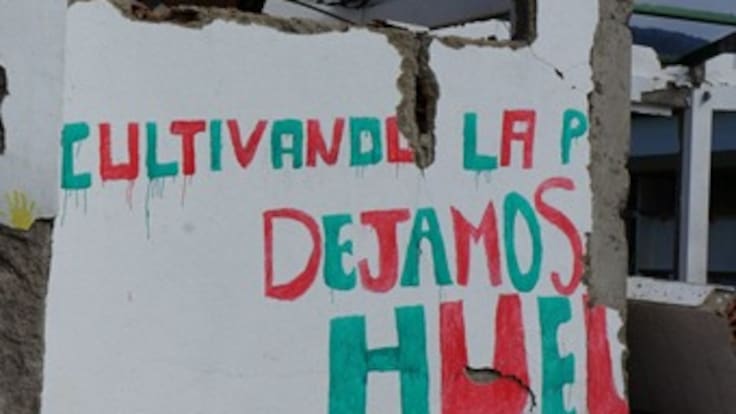 CULTIVANDO LA P
DEJAMOS
HUEL